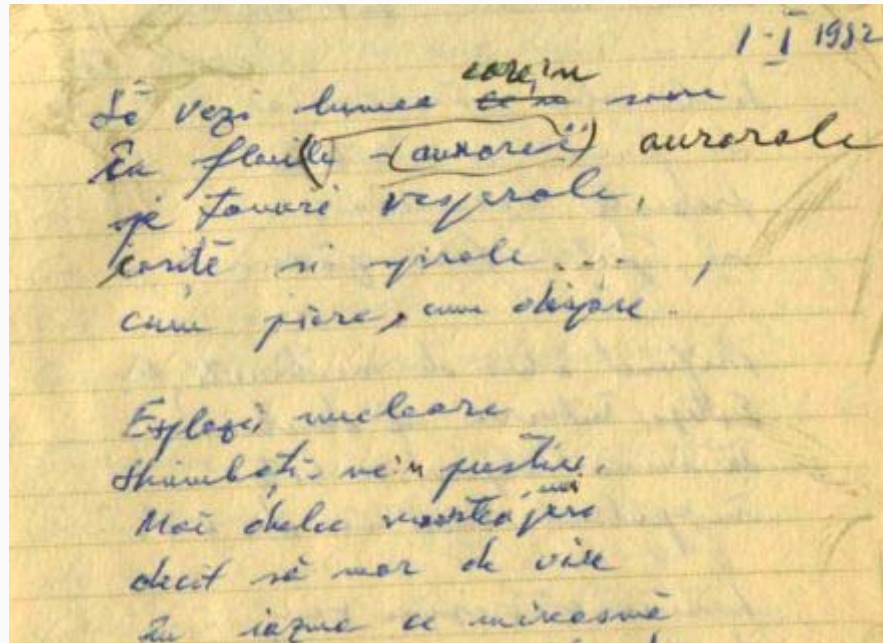 1-I 1982
Să vezi lumea care'n mare
În florile (aurorei) aurorale
pe
vesperale,
și spirale....,
cum piere, cum dispare.
Explozii nucleare
Schimbați-ne'n pustiu.
Mai dulce moartea'mi pare
decît să mor de viu
În iazma ce mireasmă